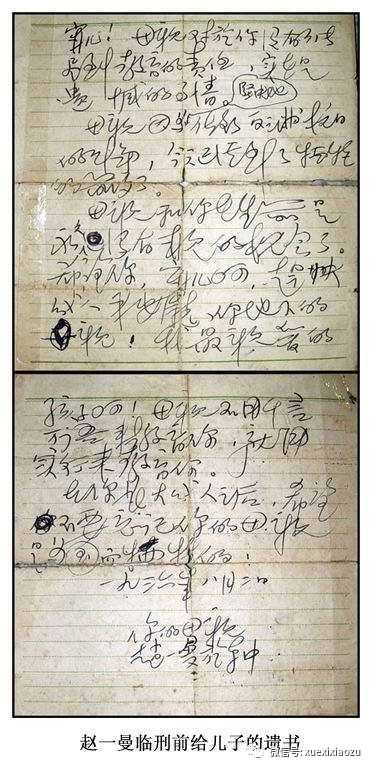 宁儿！母亲对于你没有能尽
到教育的责任，实在是
遗憾的事情。
母亲因为坚决地做了反满抗日
的斗争，今天已经到了牺牲
的前夕了。
母亲和你在生前是
永久没有见的机会了。
希望你，宁儿啊，赶快
成人，来安慰你地下的
母亲！我最亲爱的
孩子啊！母亲不用千言
万语来教育你，就用
实行来教育你。
在你长大成人之后，希望
不要忘记你的母亲
是为国而牺牲的！
一九三六年八月二日
你的母亲
赵一曼于车中
赵一曼临刑前给儿子的遗书
微信号: xuexixiaozu